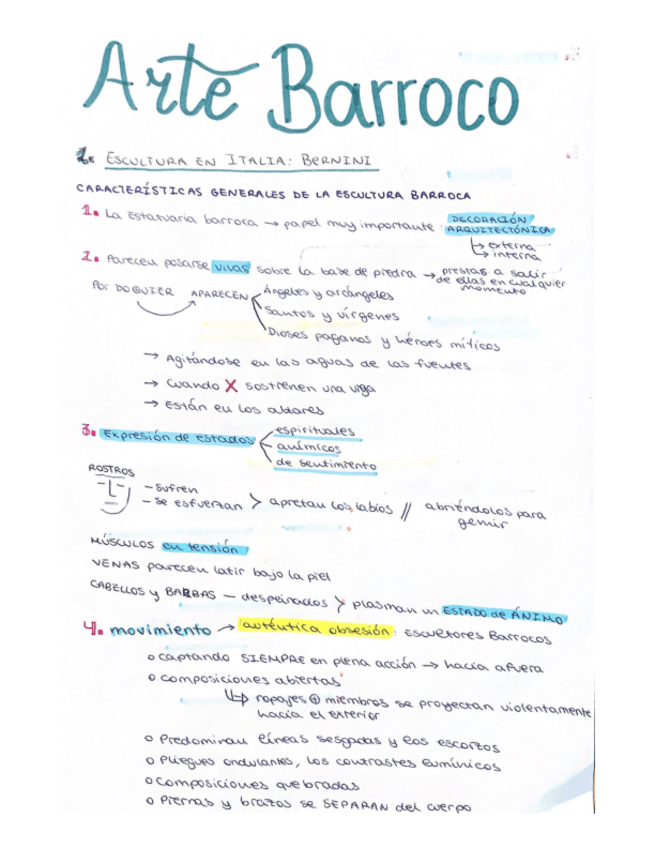 Arte Barroco
1. ESCULTURA EN ITALIA: BERNINI
CARACTERÍSTICAS GENERALES DE LA ESCULTURA BARROCA
1. La Estatuaria barroca → papel muy importante: DECORACIÓN ARQUITECTÓNICA
↳ externa
↳ interna
2. Parecen posarse vivas sobre la base de piedra → prestas a salir de ellas en cualquier momento
Por DOQUIER APARECEN
Ángeles y arcángeles
Santos y vírgenes
Dioses paganos y héroes míticos
→ Agitándose en las aguas de las fuentes
→ Cuando X sostienen una viga
→ Están en los altares
3. Expresión de estados
espirituales
anímicos
de sentimiento
ROSTROS
- Sufren
- se esfuerzan > apretan los labios // abriéndolos para gemir
MÚSCULOS en tensión
VENAS parecen latir bajo la piel
CABELLOS y BARBAS — despeinados > plasman un ESTADO de ÁNIMO
4. movimiento → auténtica obsesión: escultores Barrocos
o captando SIEMPRE en plena acción → hacia afuera
o composiciones abiertas
↳ ropajes ⊕ miembros se proyectan violentamente
hacia el exterior
o Predominan líneas sesgadas y los escorzos
o Pliegues ondulantes, los contrastes lumínicos
o Composiciones quebradas
o Piernas y brazos se SEPARAN del cuerpo